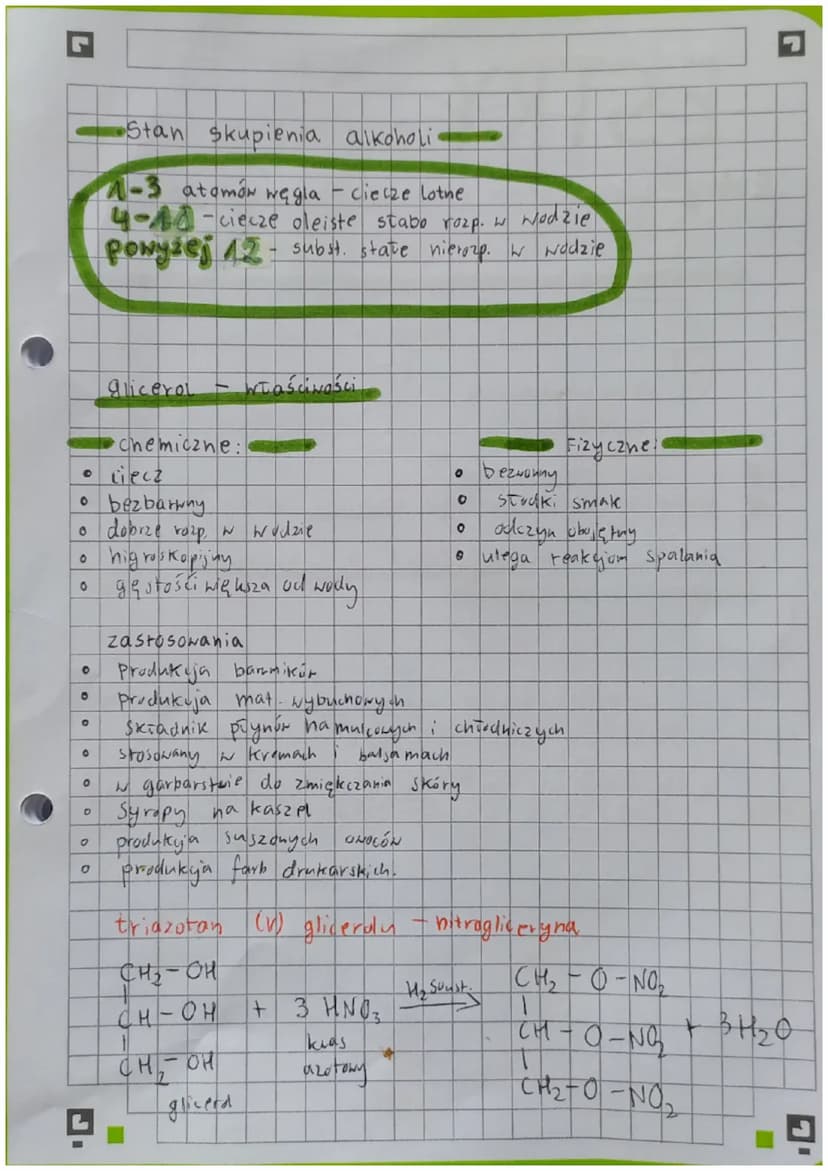 Stan skupienia alkoholi
1-3 atomów węgla - ciecze lotne
4-11 - ciecze oleiste słabo rozp. w wodzie
powyżej 12 - subst. stałe nierozp. w wodzie
glicerol - właściwości
chemiczne:
• ciecz
• bezbarwny
• dobrze rozp. w wodzie
• higroskopijny
• gęstości większa od wody
Fizyczne:
• bezwonny
• słodki smak
• odczyn obojętny
• ulega reakcjom spalania
zastosowania
• produkcja barwników
• produkcja mat. wybuchowych
• składnik płynów hamulcowych i chłodniczych
• stosowany w kremach i balsamach
• w garbarstwie do zmiękczania skóry
• syropy na kaszel
• produkcja suszonych owoców
• produkcja farb drukarskich.
triazotan (V) glicerolu - nitrogliceryna
CH₂-OH
CH-OH + 3 HNO₃
CH₂-OH
kwas
azotowy
glicerol
CH₂-O-NO₂
CH-O-NO₂ + 3H₂O
CH₂-O-NO₂